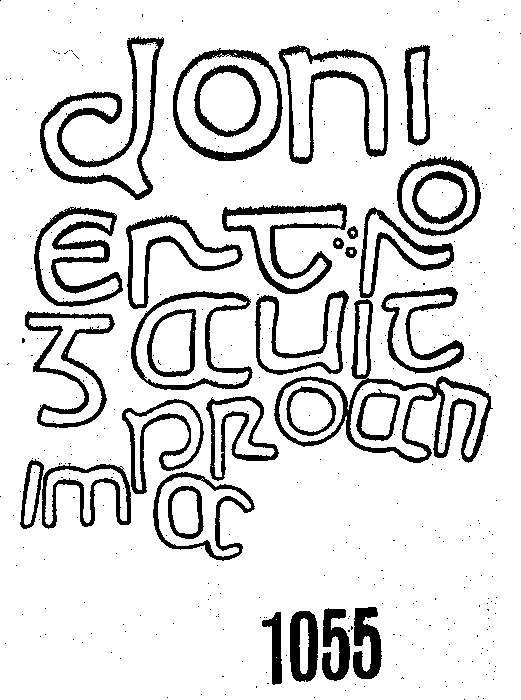 doni
ert:ro
ᵹauit
proan
ima
1055